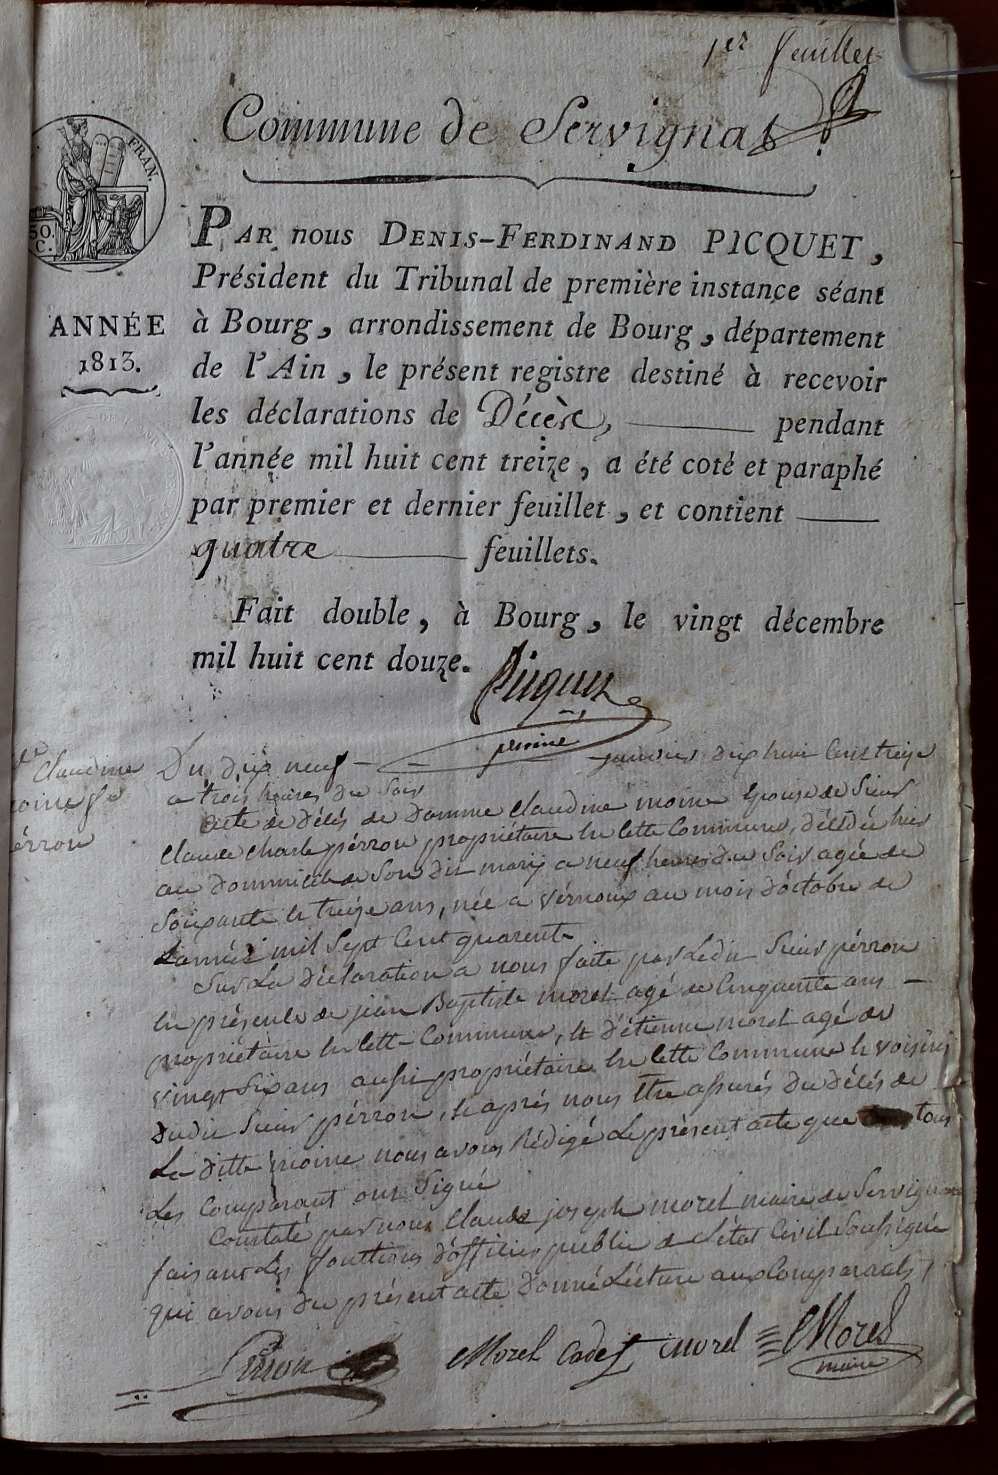 1er feuillet
Commune de Servignat
FRAN.
50.
C.
ANNÉE
1813.
PAR nous DENIS-FERDINAND PICQUET,
Président du Tribunal de première instance séant
à Bourg, arrondissement de Bourg, département
de l'Ain, le présent registre destiné à recevoir
les déclarations de Décès, pendant
l'année mil huit cent treize, a été coté et paraphé
par premier et dernier feuillet, et contient
quatre feuillets.
Fait double, à Bourg, le vingt décembre
mil huit cent douze.
Picquet
Claudine
moine fe
pérron
Du dix neuf janvier dix huit Cent treize
a trois heures du Soir
acte de délés de Damme Claudine moine Epouse de Sieur
Claude Charle pérron propriétaire En Cette Commune, délédée hier
au Dommicile de Son dit mary a neuf heures du Soir agée de
Soixante et treize ans, née a Vérnoux au mois d'octobre de
L'année mil Sept Cent quarente
Sur La déclaration a nous faite par Ledit Sieur pérron
En présence de jean Baptiste morel agé de Cinquante ans
propriétaire En Cette Commune, et d'étienne morel agé de
vingt Six ans aussi propriétaire En Cette Commune et voisins
dudit Sieur pérron, Et aprés nous Etre assurés du délés de
La ditte moine nous avons Rédigé Le présent acte que tous
Les Comparant ont Signé
Constaté par nous Claude joseph morel maire de Servignat
faisant Les fonttions d'officier public de L'état Civil Soussigné
qui avons du présent acte Donné Lécture aux Comparants /
Perron Morel Cadet morel Morel
maire